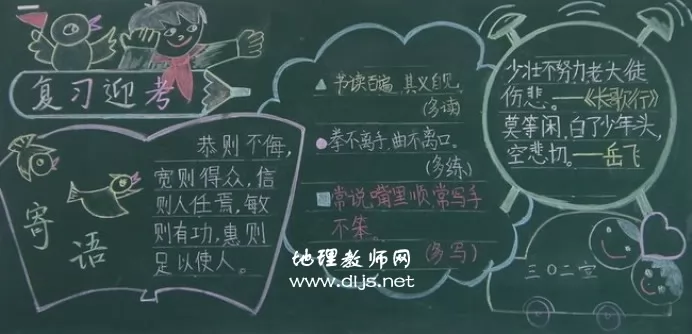 复习迎考
寄语
恭则不侮，
宽则得众，信
则人任焉，敏
则有功，惠则
足以使人。
书读百遍，其义自见。
(多读)
拳不离手，曲不离口。
(多练)
常说嘴里顺，常写手
不笨。
(多写)
少壮不努力老大徒
伤悲。——《长歌行》
莫等闲，白了少年头，
空悲切。——岳飞
三〇二宣
地理教师网
www.dljs.net